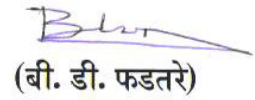 (बी. डी. फडतरे)